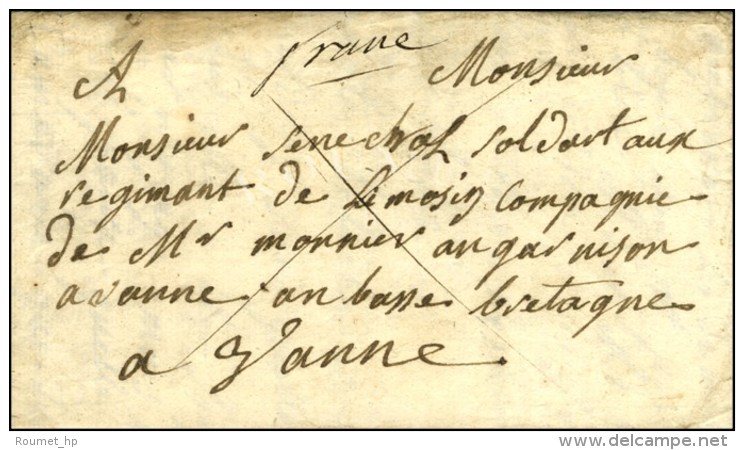 franc
A Monsieur
Monsieur senechal soldart aux
regimant de Limosin Compagnie
de Mr monnier angarnison
a vanne an basse bretagne
a Vanne.
Roumet_hp
delcampe.net